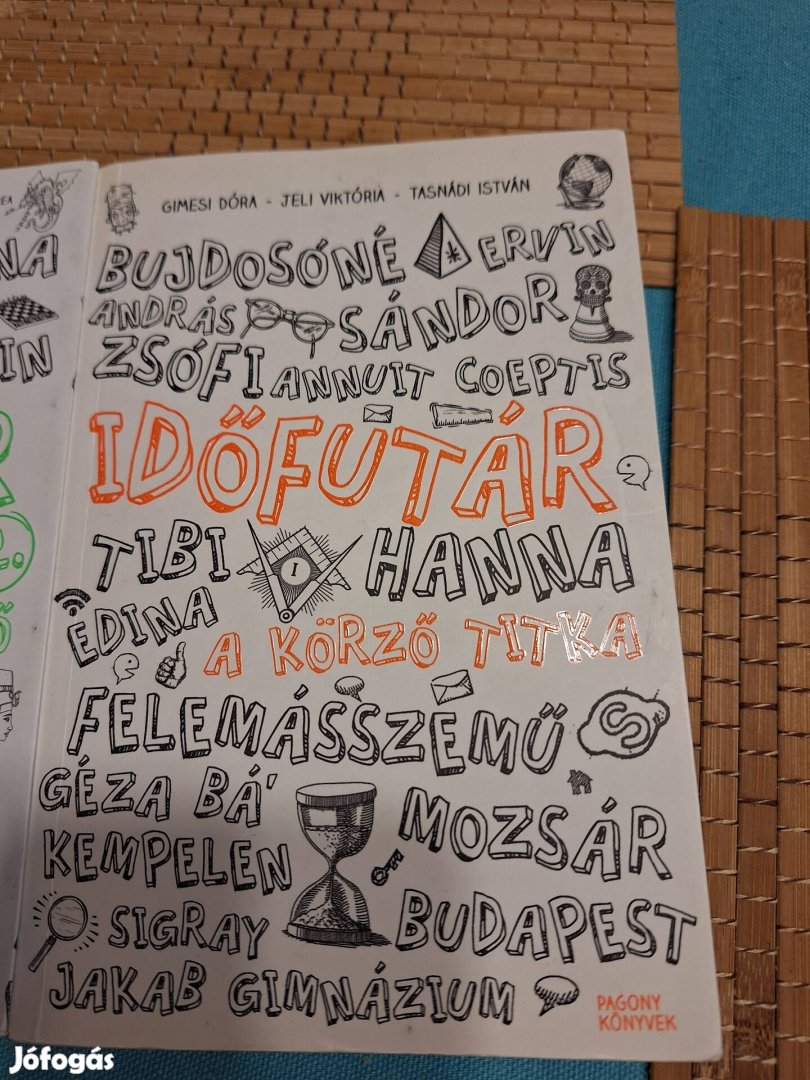 GIMESI DÓRA - JELI VIKTÓRIA - TASNÁDI ISTVÁN
BUJDOSÓNÉ ERVIN
ANDRÁS SÁNDOR
ZSÓFI ANNUIT COEPTIS
IDŐFUTÁR
TIBI HANNA
EDINA
A KÖRZŐ TITKA
FELEMÁSSZEMŰ
GÉZA BÁ' MOZSÁR
KEMPELEN
SIGRAY BUDAPEST
JAKAB GIMNÁZIUM
PAGONY
KÖNYVEK
Jófogás